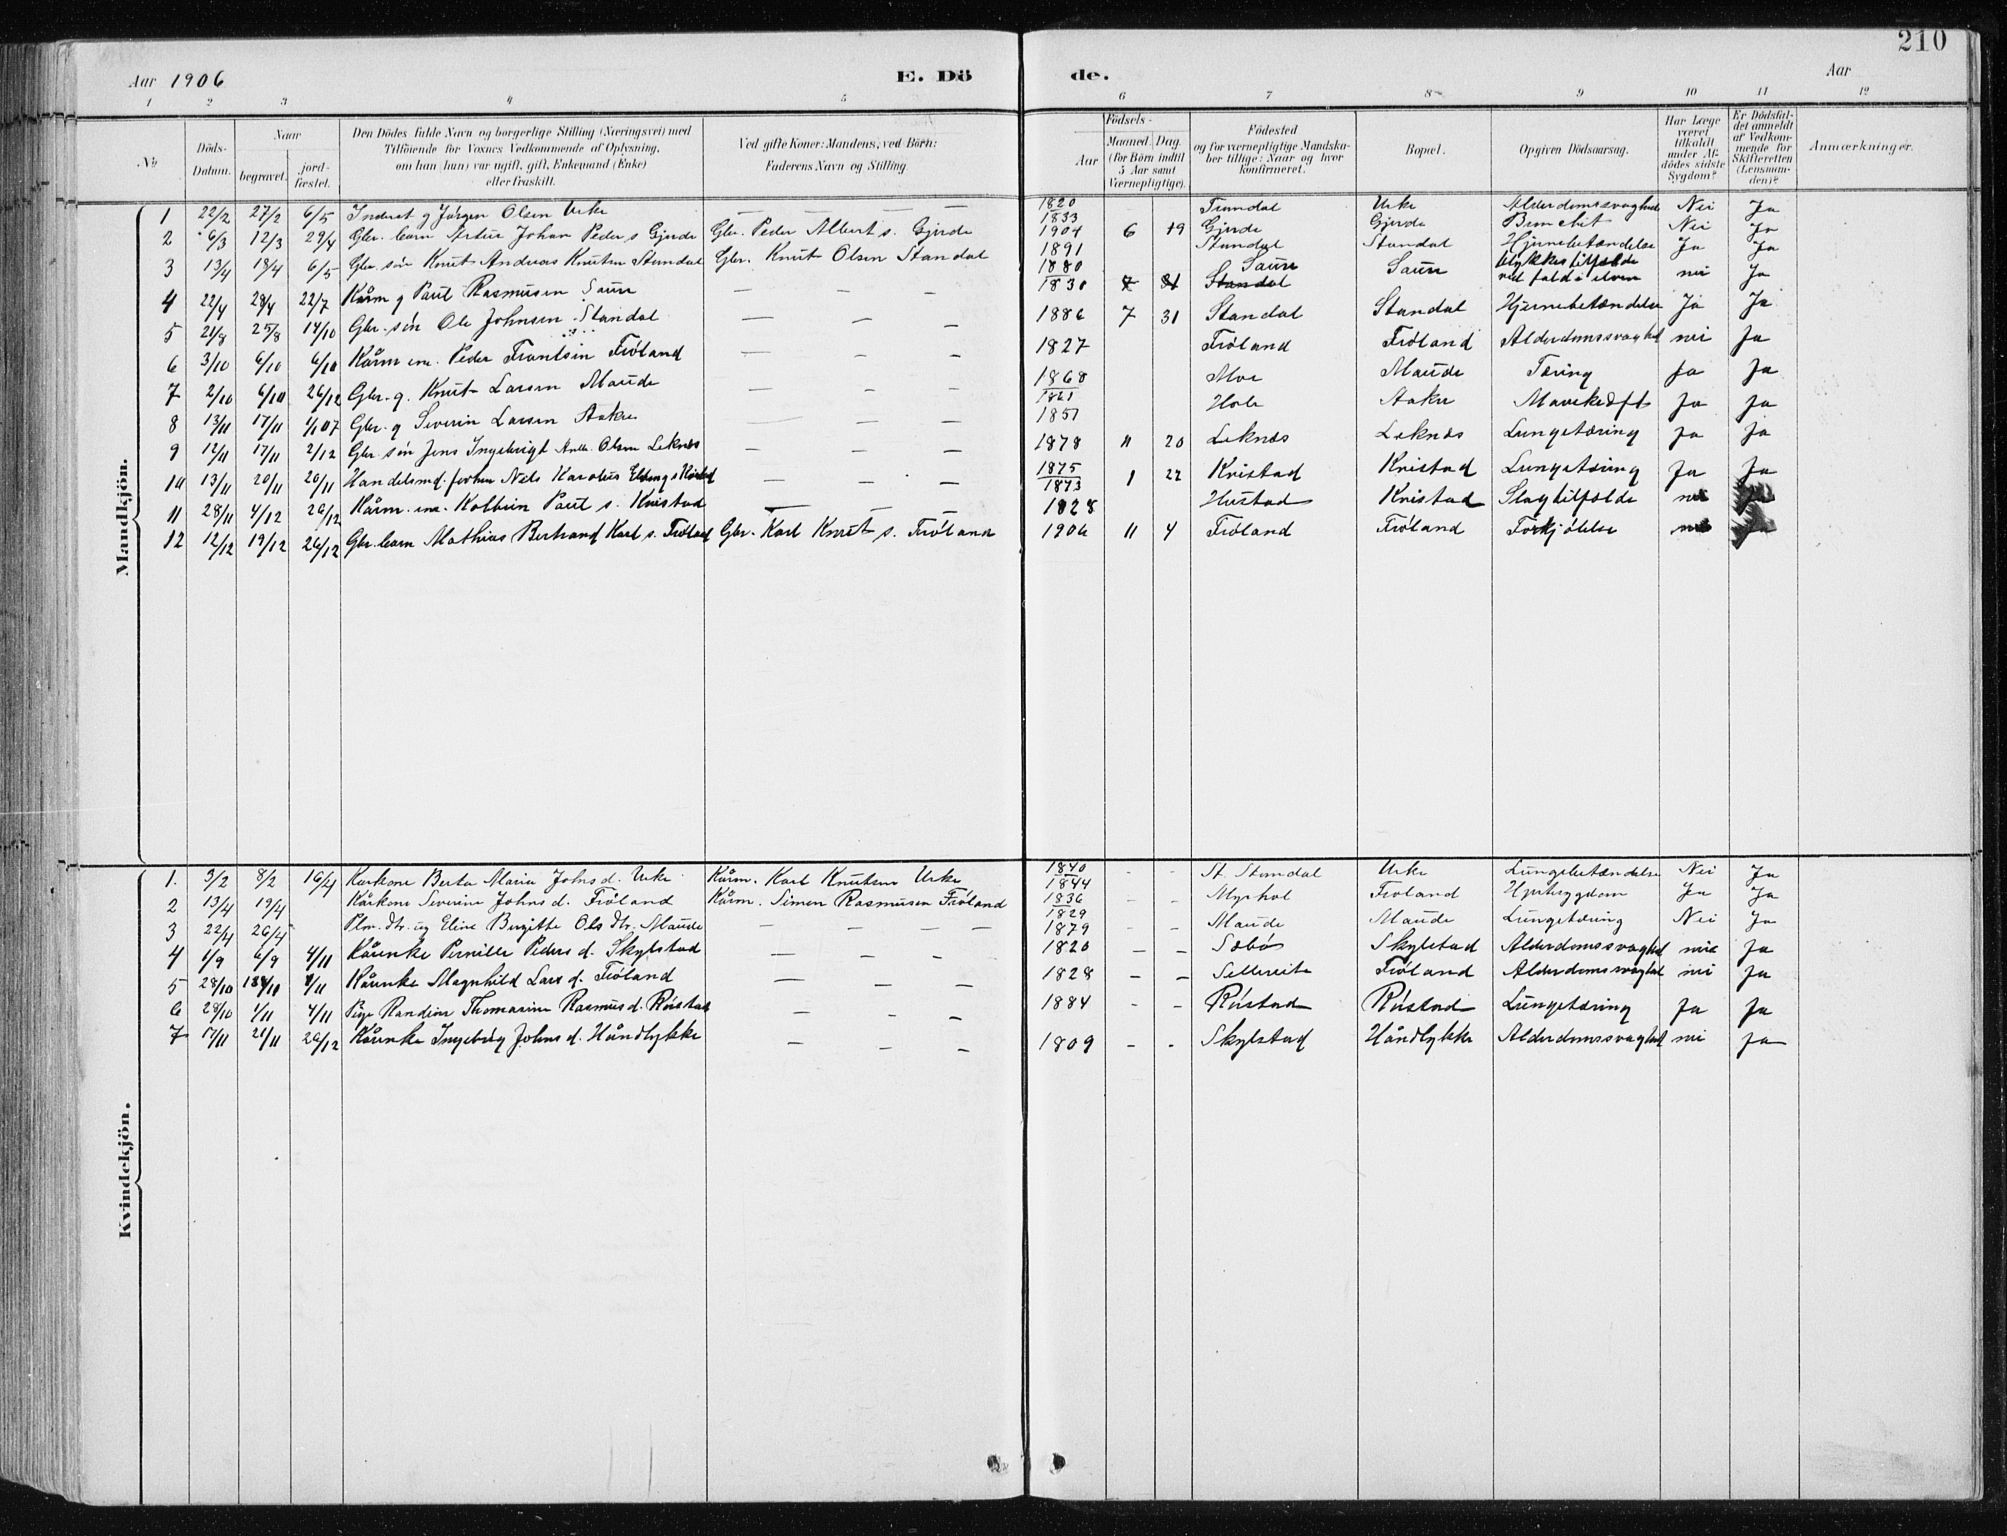 210
Aar 1906 E. Dö de. Aar
1 2 3 4 5 6 7 8 9 10 11 12
No Döds-Datum. Naar begravet. jord-fæstet. Den Dödes fulde Navn og borgerlige Stilling (Næringsvei) med Tilföiende for Voxnes Vedkommende af Oplysning, om han (hun) var ugift, gift, Enkemand (Enke) eller fraskilt. Ved gifte Koner: Mandens, ved Börn: Faderens Navn og Stilling. Födsels- Aar Maaned. Dag. (for Börn indtil 5 Aar samt Værnepligtige). Födested og for værnepligtige Mandskaber tillige: Naar og hvor konfirmeret. Bopæl. Opgiven Dödsaarsag. Har Læge været tilkaldt under Afdödes sidste Sygdom? Er Dödsfaldet anmeldt af Vedkommende for Skifteretten (Lensmanden)? Anmærkninger.
Mandkjön.
1 22/2 27/2 6/5 Inderst g Jörgen Olsen Urke — — — 1820 Urke Alderdomssvaghed Nei Ja
2 6/3 12/3 29/4 Gbr. barn Johan Peder s Gjerde Gbr. Peder Albert s. Gjerde 1833 1904 6 19 Gjerde Gjerde Nei Ja
3 13/4 18/4 6/5 Gbr. sön Knut Andreas Knutsen Standal Gbr. Knut Olsen Standal 1891 Standal Standal Hjernebetændelse Ja Ja
4 22/4 28/4 22/7 Kårm g Paul Rasmusen Saure — — — 1880 1830 Saure Standal Saure Ulykkestilfælde ved fald i elven nei Ja
5 21/8 25/8 14/10 Gbr. sön Ole Johnsen Standal — — — 1886 7 31 Standal Standal Hjernebetændelse Ja Ja
6 3/10 6/10 6/10 Kårm em. Peder Frantsen Fröland — — — 1827 Fröland Fröland Alderdomssvaghed nei Ja
7 2/10 6/10 26/12 Gbr. g. Knut Larsen Maude — — — 1868 Moe Maude Tæring Ja Ja
8 13/11 17/11 1/1 07 Gbr. g Severin Larsen Aakre — — — 1861 1851 Hole Aakre Mavekræft Ja Ja
9 12/11 17/11 2/12 Gbr. sön Jens Ingebrigt Olsen Leknes — — — 1878 11 20 Leknæs Leknæs Lungetæring Ja Ja
10 13/11 20/11 20/11 Handelsmd. Nils Karolus Kristad — — — 1875 1873 1 22 Kvistad Kvistad Lungetæring Ja Ja
11 28/11 4/12 26/12 Kårm. em. Kolbein Paul s. Kvistad — — — 1828 Hustad Kvistad Slagtilfælde nei Ja
12 12/12 19/12 26/12 Gbr. barn Mathias Bertrand Karl s. Fröland Gbr. Karl Knut s. Fröland 1906 11 4 Fröland Fröland Forkjölelse nei Ja
Kvindekjön.
1. 3/2 8/2 16/4 Kårkone Berta Maria Johns d. Urke Kårm. Karl Knutsen Urke 1840 1844 - - St. Standal Urke Lungebetændelse Nei Ja
2 13/4 19/4 Kårkone Severine Johns d. Fröland Kårm. Simen Rasmusen Fröland 1836 1829 - - Myrhol Fröland Hjertesygdom Ja Ja
3 22/4 26/4 Plm. dtr. ug Eline Birgitte Ols dtr. Maude — — — 1879 - - Maude Maude Lungetæring Nei Ja
4 1/9 6/9 4/11 Kårenke Pernille Peders d. Skylstad — — — 1820 - - Sæbö Skylstad Alderdomssvaghed nei Ja
5 28/10 4/11 Kårenke Magnhild Lars d. Fröland — — — 1828 - - Fröland Alderdomssvaghed nei Ja
6 28/10 1/11 4/11 Pige Randine Thomasine Rasmus d. Röistad — — — 1884 - - Röistad Röistad Lungetæring Ja Ja
7 17/11 21/11 26/12 Kårenke Ingebrög Johns d. Håndlykke — — — 1809 - - Skylstad Håndlykke Alderdomssvaghed nei Ja